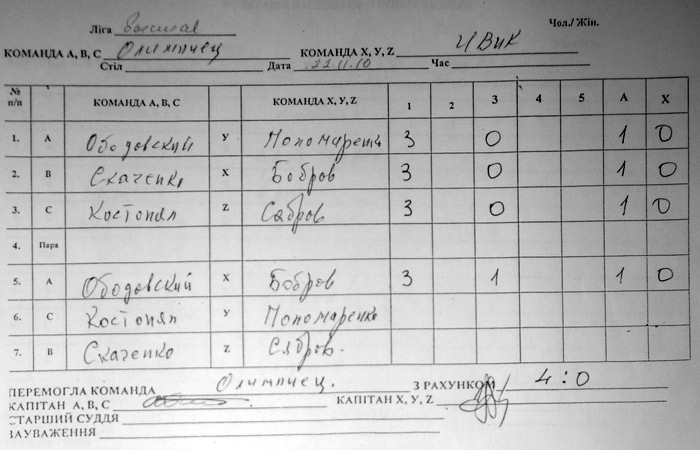 Чол./ Жін.
Ліга
КОМАНДА А, В, С Олимпиец КОМАНДА Х, У, Z ЧВик
Стіл Дата 22.11.10 Час
№ п/п КОМАНДА А, В, С КОМАНДА Х, У, Z 1 2 3 4 5 А Х
1. А Ободовский У Пономаренко 3 0 1 0
2. В Скаченко Х Бобров 3 0 1 0
3. С Костонян Z Сябров 3 0 1 0
4. Пара
5. А Ободовский Х Бобров 3 1 1 0
6. С Костонян У Пономаренко
7. В Скаченко Z Сябров.
ПЕРЕМОГЛА КОМАНДА Олимпиец. З РАХУНКОМ 4:0
КАПІТАН А, В, С КАПІТАН Х, У, Z
СТАРШИЙ СУДДЯ
ЗАУВАЖЕННЯ